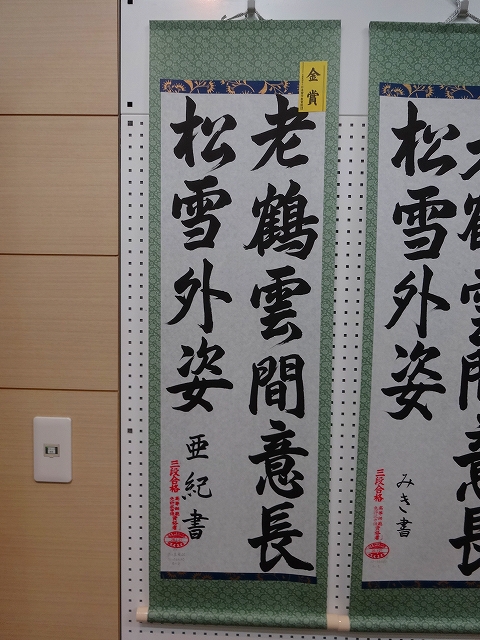 金賞
老鶴雲間意長
松雪外姿
亜紀書
三段合格
松雪外姿
みき書
三段合格